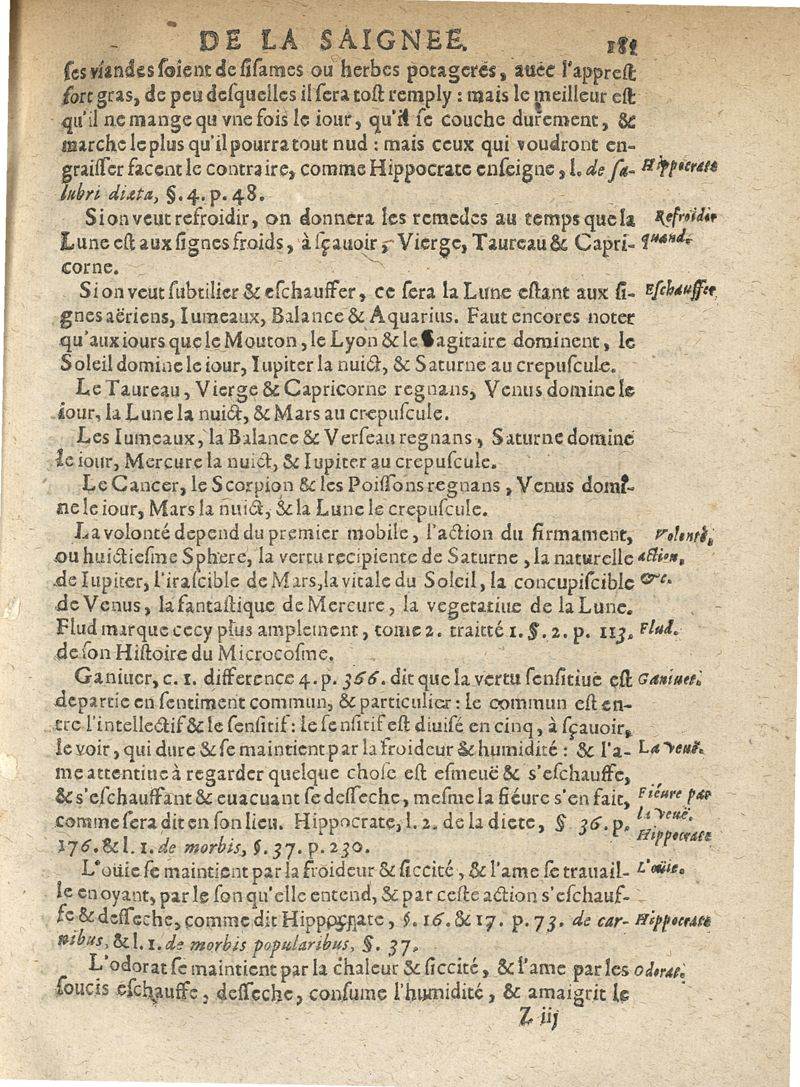 DE LA SAIGNEE. 181
ses viandes soient de sisames ou herbes potageres, auec l'apprest
fort gras, de peu desquelles il sera tost remply : mais le meilleur est
qu'il ne mange qu vne fois le iour, qu'il se couche durement, &
marche le plus qu'il pourra tout nud : mais ceux qui voudront en-
graisser facent le contraire, comme Hippocrate enseigne, l. de sa- Hippocrate
lubri diæta, §. 4. p. 48.
Si on veut refroidir, on donnera les remedes au temps que la Refroidir
Lune est aux signes froids, à sçauoir, Vierge, Taureau & Capri- quand.
corne.
Si on veut subtilier & eschauffer, ce sera la Lune estant aux si- Eschauffer
gnes aëriens, Iumeaux, Balance & Aquarius. Faut encores noter
qu'aux iours que le Mouton, le Lyon & le Sagitaire dominent, le
Soleil domine le iour, Iupiter la nuict, & Saturne au crepuscule.
Le Taureau, Vierge & Capricorne regnans, Venus domine le
iour, la Lune la nuict, & Mars au crepuscule.
Les Iumeaux, la Balance & Verseau regnans, Saturne domine
le iour, Mercure la nuict, & Iupiter au crepuscule.
Le Cancer, le Scorpion & les Poissons regnans, Venus domi-
ne le iour, Mars la nuict, & la Lune le crepuscule.
La volonté depend du premier mobile, l'action du firmament, Volonté,
ou huictiesme Sphere, la vertu recipiente de Saturne, la naturelle action,
de Iupiter, l'irascible de Mars, la vitale du Soleil, la concupiscible &c.
de Venus, la fantastique de Mercure, la vegetatiue de la Lune.
Flud marque cecy plus amplement, tome 2. traitté 1. §. 2. p. 113. Flud.
de son Histoire du Microcosme.
Ganiuer, c. 1. difference 4. p. 366. dit que la vertu sensitiue est Ganiuet.
departie en sentiment commun, & particulier : le commun est en-
tre l'intellectif & le sensitif : le sensitif est diuisé en cinq, à sçauoir,
le voir, qui dure & se maintient par la froideur & humidité : & l'a- La veuë.
me attentiue à regarder quelque chose est esmeuë & s'eschauffe,
& s'eschauffant & euacuant se desseche, mesme la fiéure s'en fait, Fieure par
comme sera dit en son lieu. Hippocrate, l. 2. de la diete, § 36. p. la veuë.
176. & l. 1. de morbis, §. 37. p. 230. Hippocrate
L'oüie se maintient par la froideur & siccité, & l'ame se trauail- L'oüie.
le en oyant, par le son qu'elle entend, & par ceste action s'eschauf-
fe & desseche, comme dit Hippocrate, §. 16. & 17. p. 73. de car- Hippocrate
nibus, & l. 1. de morbis popularibus, §. 37.
L'odorat se maintient par la chaleur & siccité, & l'ame par les Odorat.
soucis eschauffe, desseche, consume l'humidité, & amaigrit le
Z iij